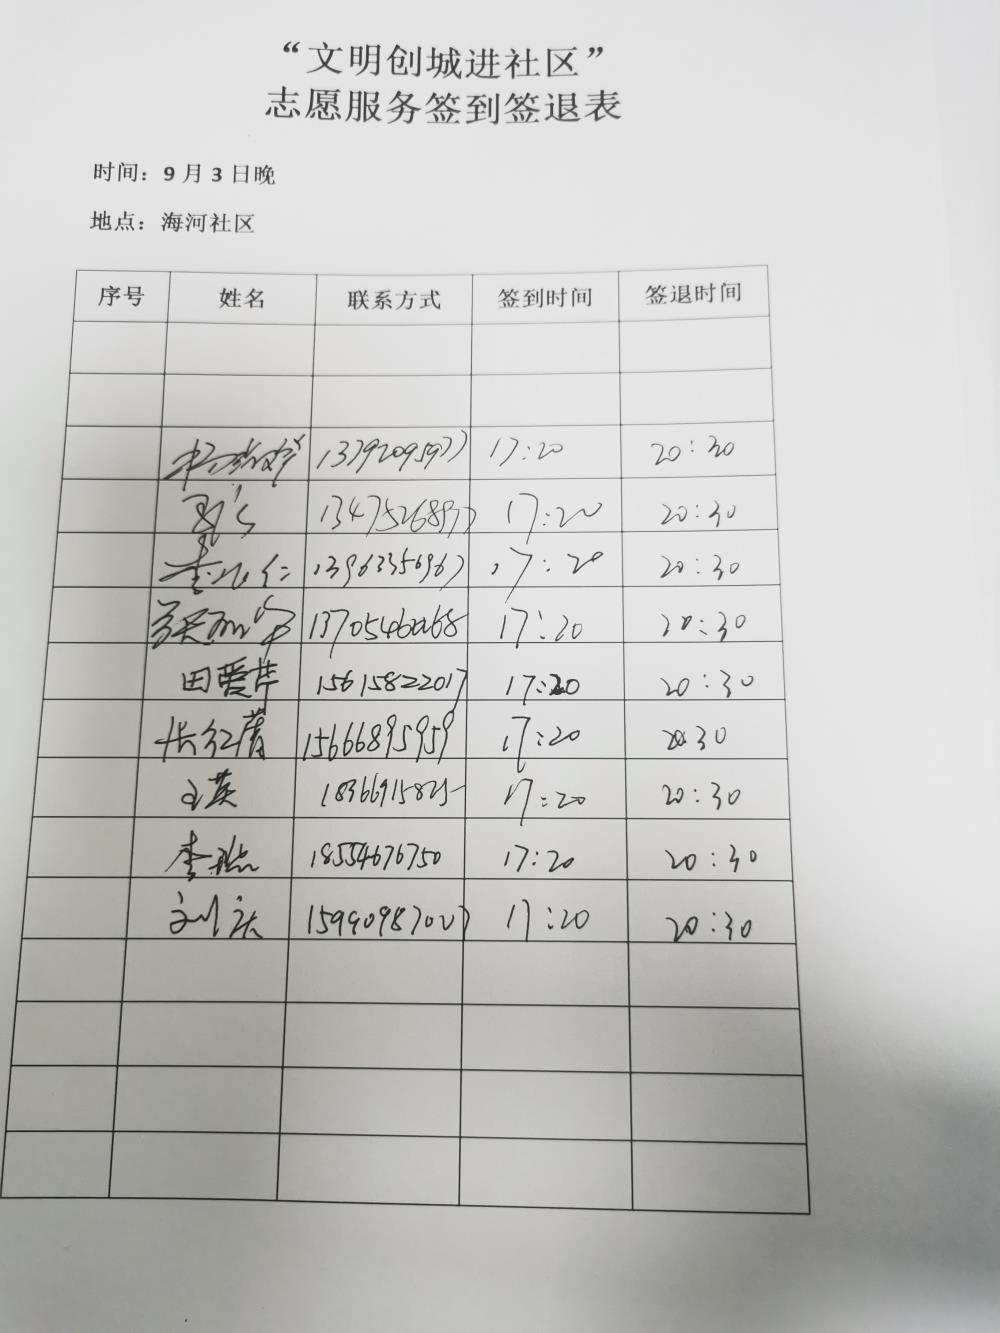 “文明创城进社区”
志愿服务签到签退表
时间：9月3日晚
地点：海河社区
序号 姓名 联系方式 签到时间 签退时间
17:20 20:30
13475268977 17:20 20:30
13963356967 17:20 20:30
17:20 20:30
田爱芹 15615822017 17:20 20:30
15666895959 17:20 20:30
王英 18366915825 17:20 20:30
李 18554676750 17:20 20:30
刘庆 17:20 20:30